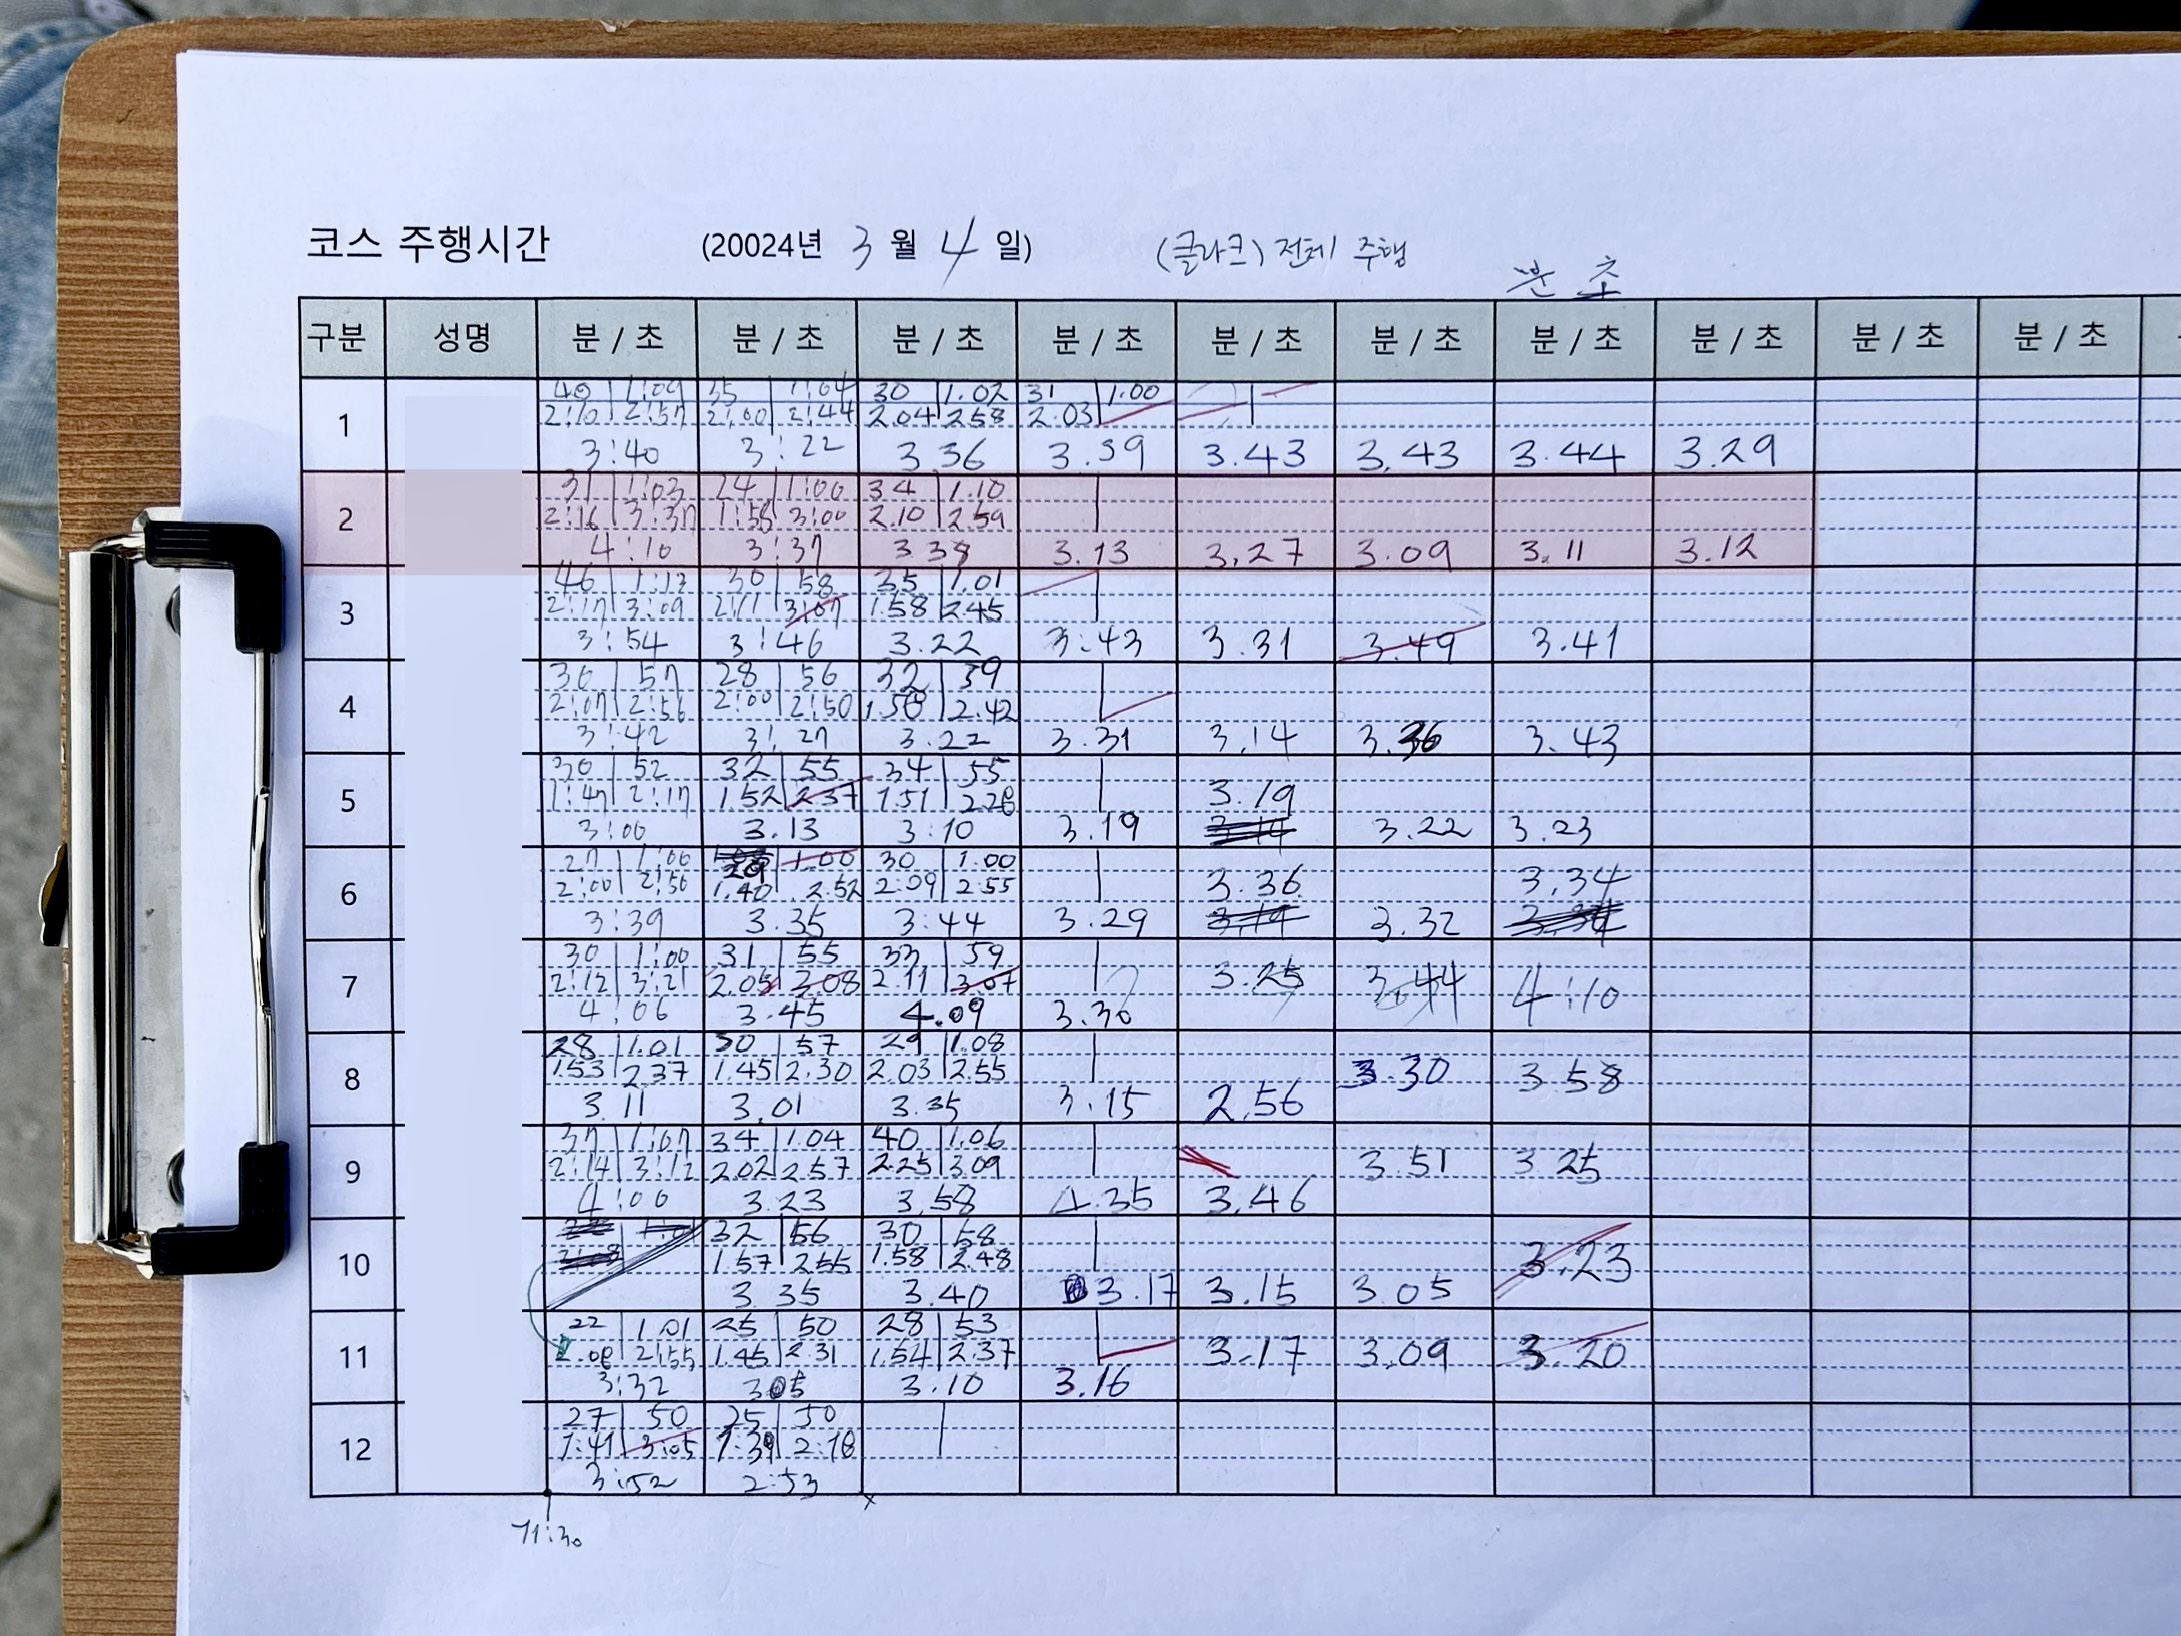 코스 주행시간 (20024년 3월 4일) (클라크) 전체 주행
분 초
구분 성명 분/초 분/초 분/초 분/초 분/초 분/초 분/초 분/초 분/초 분/초
40 1:09 35 1:04 30 1.02 31 1.00
1 2:10 2:57 2:00 2:44 2.04 2.58 2.03
3:40 3:22 3.36 3.39 3.43 3.43 3.44 3.29
31 1:03 24 1:00 34 1.10
2 2:16 3:37 1:56 3:00 2.10 2.59
4:10 3:37 3.13 3.27 3.09 3.11 3.12
46 1:13 30 58 35 1.01
3 2:17 3:09 2:11 3:07 1.58 2.45
3:54 3:46 3.22 3:43 3.31 3.49 3.41
36 57 28 56 32 39
4 2:07 2:56 2:00 2:50 1.58 2.42
3:42 3:27 3.22 3.31 3.14 3.36 3.43
30 52 32 55 34 55
5 1:47 2:17 1.52 2.37 1.51 2.28 3.19
3:00 3.13 3:10 3.19 3.22 3.23
27 1:00 29 1.00 30 1.00
6 2:00 2:50 1.40 2.52 2:09 2.55 3.36 3.34
3:39 3.35 3:44 3.29 3.32
30 1:00 31 55 33 59
7 2:12 3:21 2.05 3.08 2.11 3.07 3.25 3.44 4:10
4:06 3.45 4.09 3.30
28 1.01 30 57 29 1.08
8 1.53 2.37 1.45 2.30 2.03 2.55 3.30 3.58
3.11 3.01 3.35 3.15 2.56
37 1:07 34 1.04 40 1.06
9 2:14 3:12 2.02 2.57 2.25 3.09 3.51 3.25
4:00 3.23 3.58 4.35 3.46
32 56 30 58
10 1.57 2.55 1.58 2.48 3.23
3.35 3.40 3.17 3.15 3.05
22 1.01 25 50 28 53
11 2.08 2:55 1.45 2.31 1.54 2.37 3.17 3.09 3.20
3:32 3.05 3.10 3.16
27 50 25 50
12 1:41 3:05 1:39 2:18
3:52 2:53
11:30